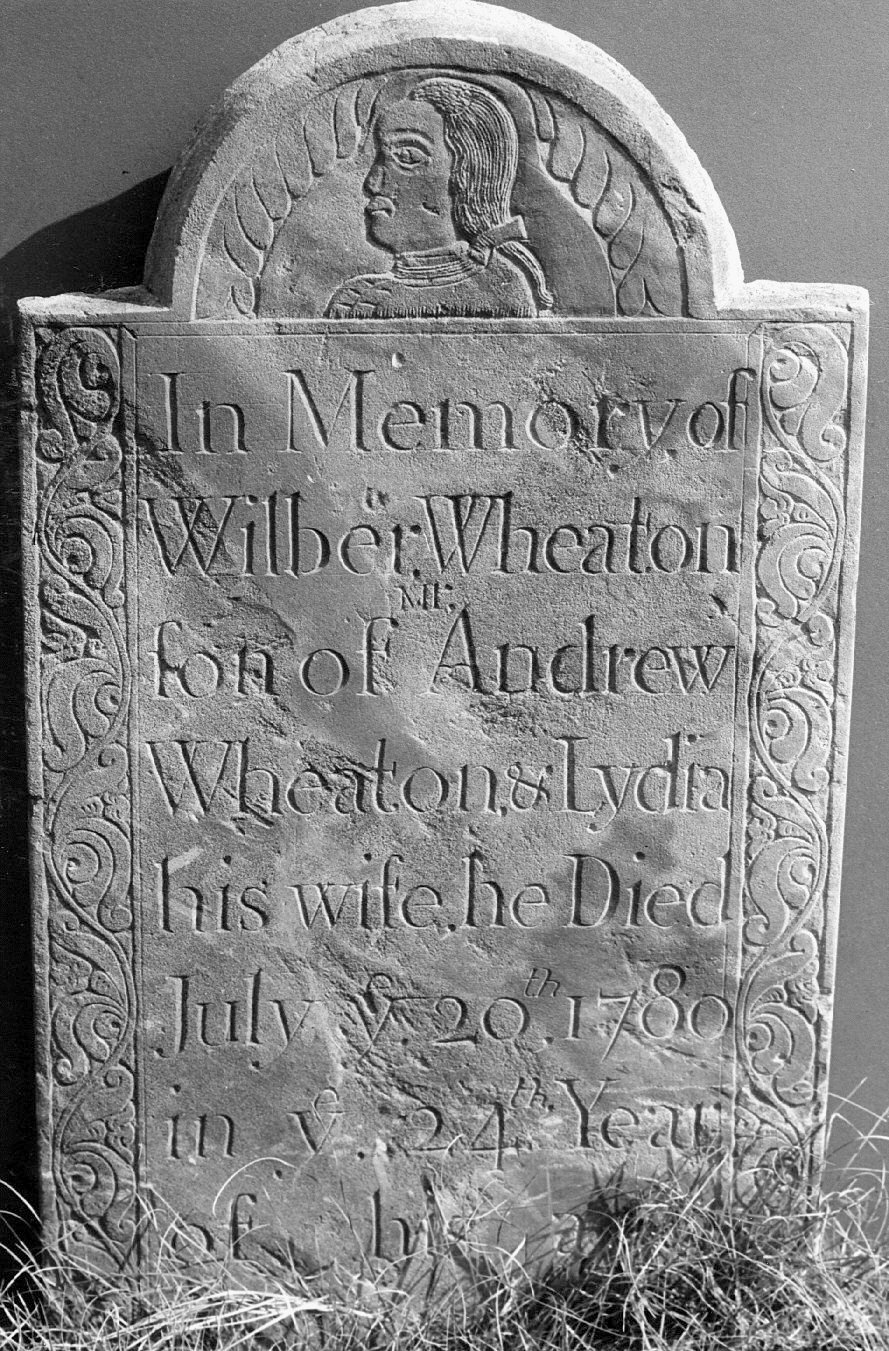 In Memory of
Wilber Wheaton
ſon of Mr. Andrew
Wheaton, & Lydia
his wife, he Died
July yᵉ. 20th. 1780
in yᵉ. 24th. Year
of his